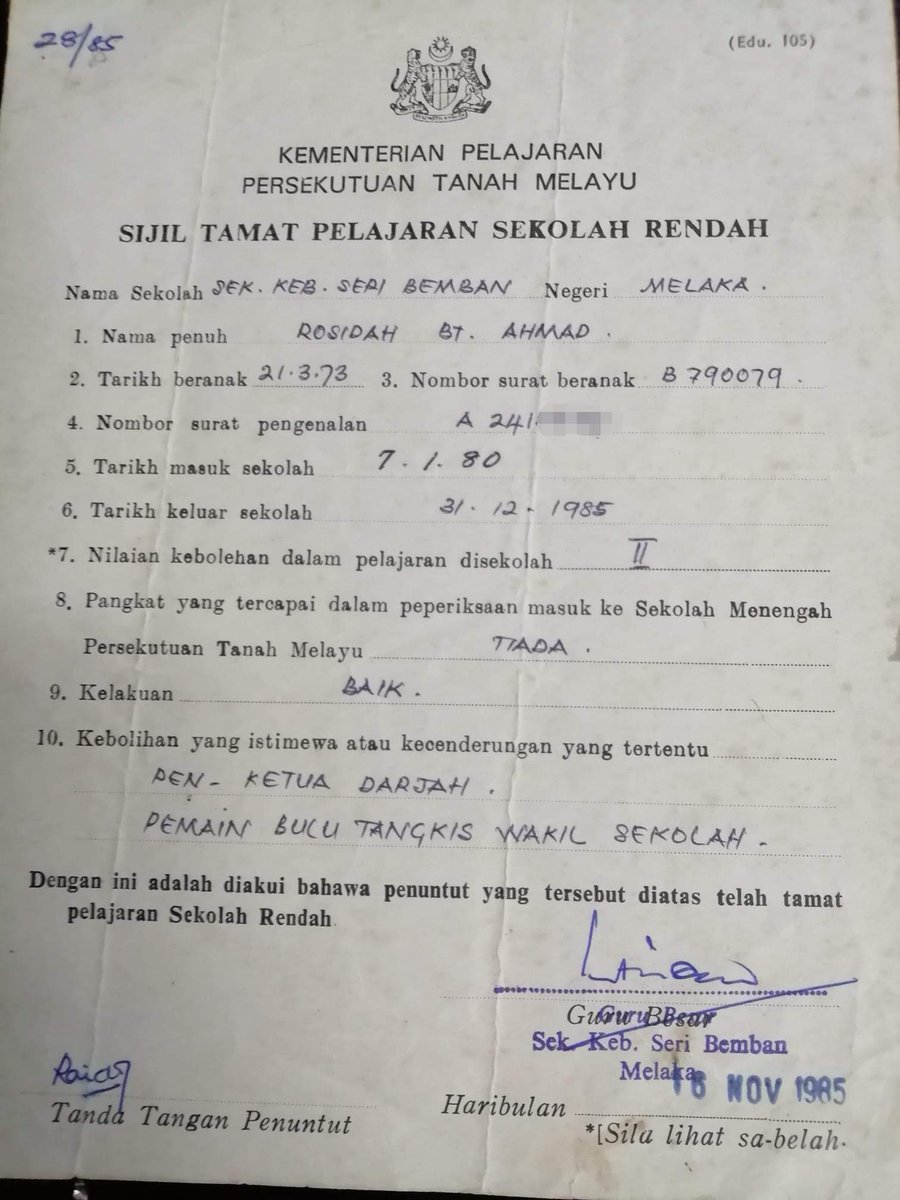 28/85
(Edu. 105)
KEMENTERIAN PELAJARAN
PERSEKUTUAN TANAH MELAYU
SIJIL TAMAT PELAJARAN SEKOLAH RENDAH
Nama Sekolah SEK. KEB. SERI BEMBAN Negeri MELAKA.
1. Nama penuh ROSIDAH BT. AHMAD.
2. Tarikh beranak 21.3.73 3. Nombor surat beranak B 790079.
4. Nombor surat pengenalan A 241
5. Tarikh masuk sekolah 7.1.80
6. Tarikh keluar sekolah 31.12.1985
*7. Nilaian kebolehan dalam pelajaran disekolah II
8. Pangkat yang tercapai dalam peperiksaan masuk ke Sekolah Menengah
Persekutuan Tanah Melayu TIADA.
9. Kelakuan BAIK.
10. Kebolihan yang istimewa atau kecenderungan yang tertentu
PEN- KETUA DARJAH.
PEMAIN BULU TANGKIS WAKIL SEKOLAH.
Dengan ini adalah diakui bahawa penuntut yang tersebut diatas telah tamat
pelajaran Sekolah Rendah.
Guru Besar
Guru Besar
Sek. Keb. Seri Bemban
Melaka.
16 NOV 1985
Haribulan
Tanda Tangan Penuntut
*[Sila lihat sa-belah.